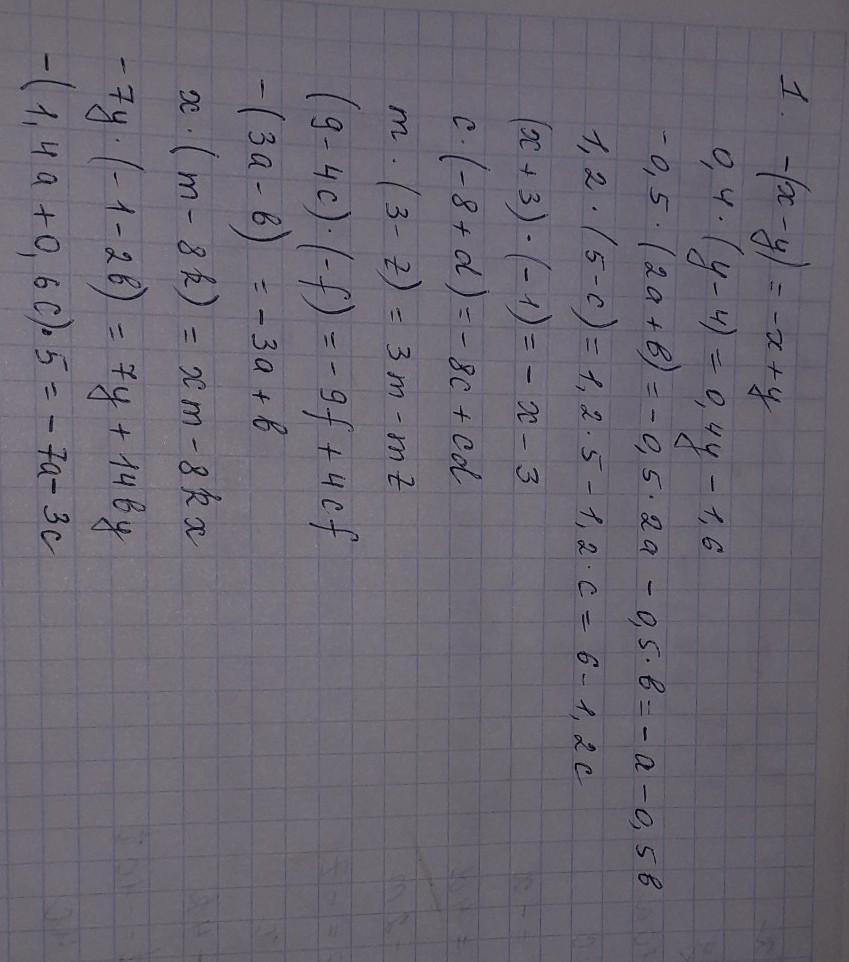 1. -(x-y)=-x+y
0,4·(y-4)=0,4y-1,6
-0,5·(2a+b)=-0,5·2a-0,5·b=-a-0,5b
1,2·(5-c)=1,2·5-1,2·c=6-1,2c
(x+3)·(-1)=-x-3
c·(-8+d)=-8c+cd
m·(3-z)=3m-mz
(g-4c)·(-f)=-gf+4cf
-(3a-b)=-3a+b
x·(m-8k)=xm-8kx
-7y·(-1-2b)=7y+14by
-(1,4a+0,6c)·5=-7a-3c